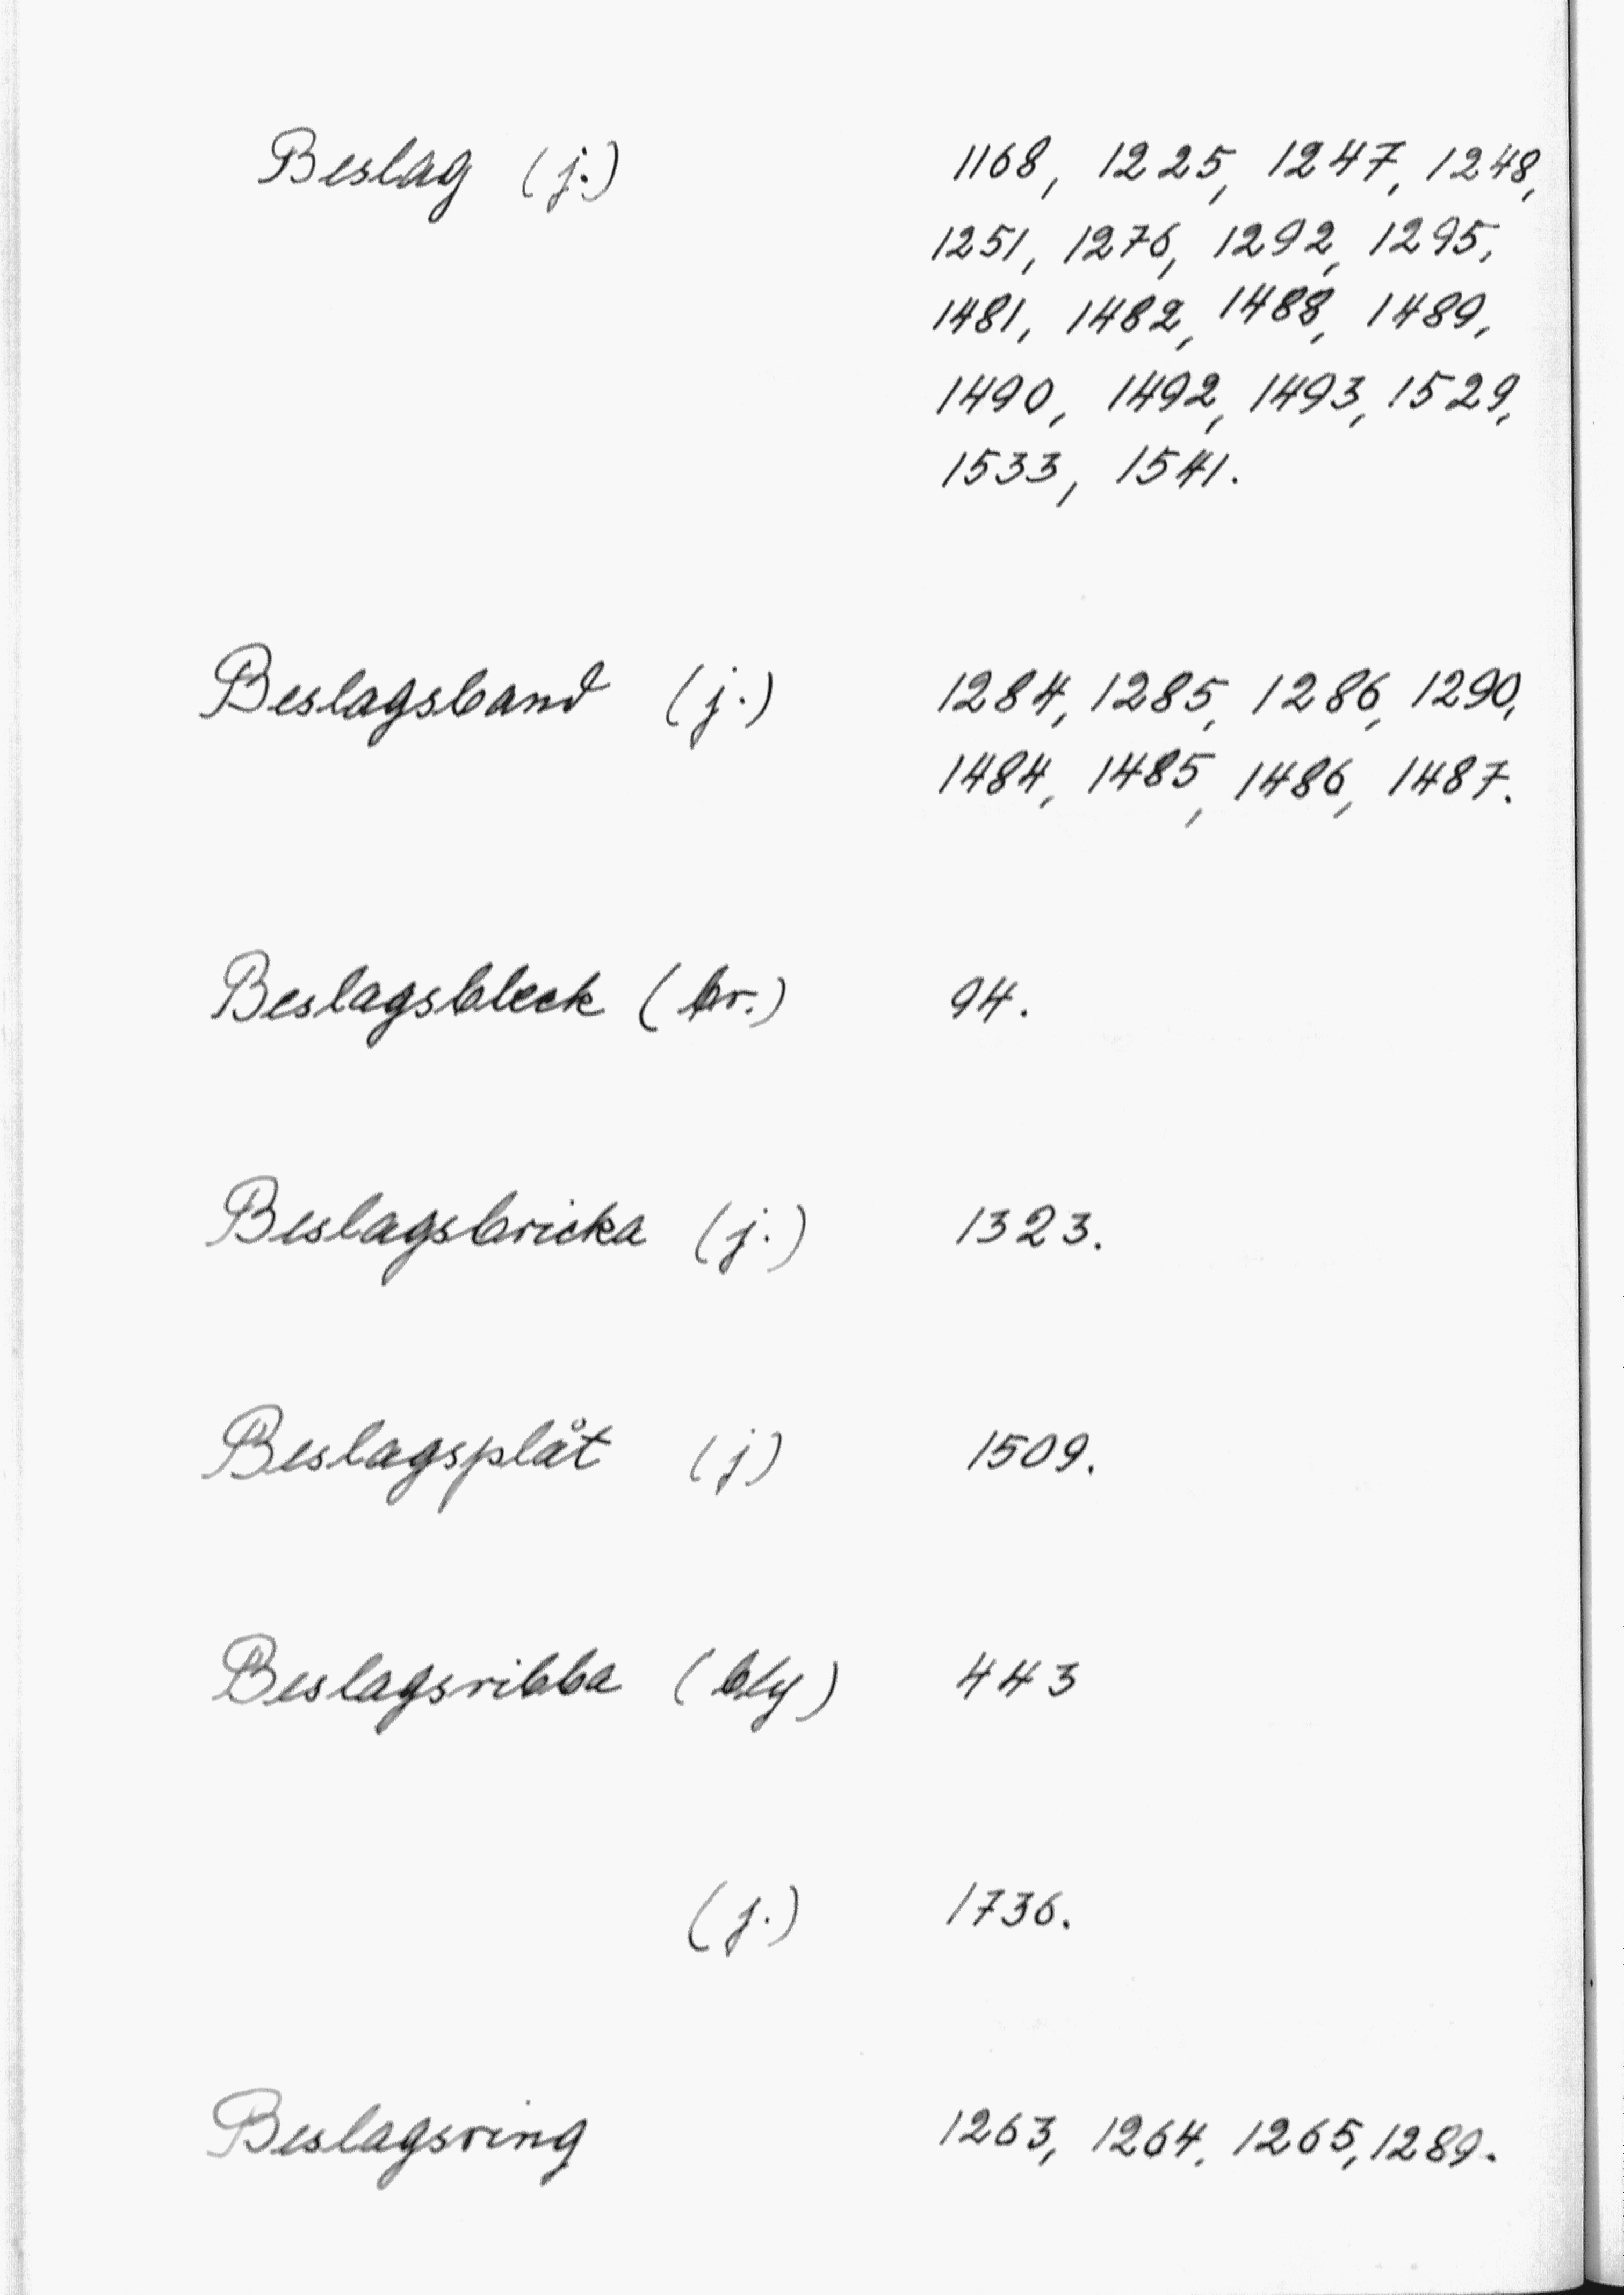 Beslag (j.) 1168, 1225, 1247, 1248,
1251, 1276, 1292, 1295,
1481, 1482, 1488, 1489,
1490, 1492, 1493, 1529,
1533, 1541.
Beslagsband (j.) 1284, 1285, 1286, 1290,
1484, 1485, 1486, 1487.
Beslagsbleck (br.) 94.
Beslagsbricka (j.) 1323.
Beslagsplåt (j) 1509.
Beslagsribba (bly) 443
(j.) 1736.
Beslagsring 1263, 1264, 1265, 1289.